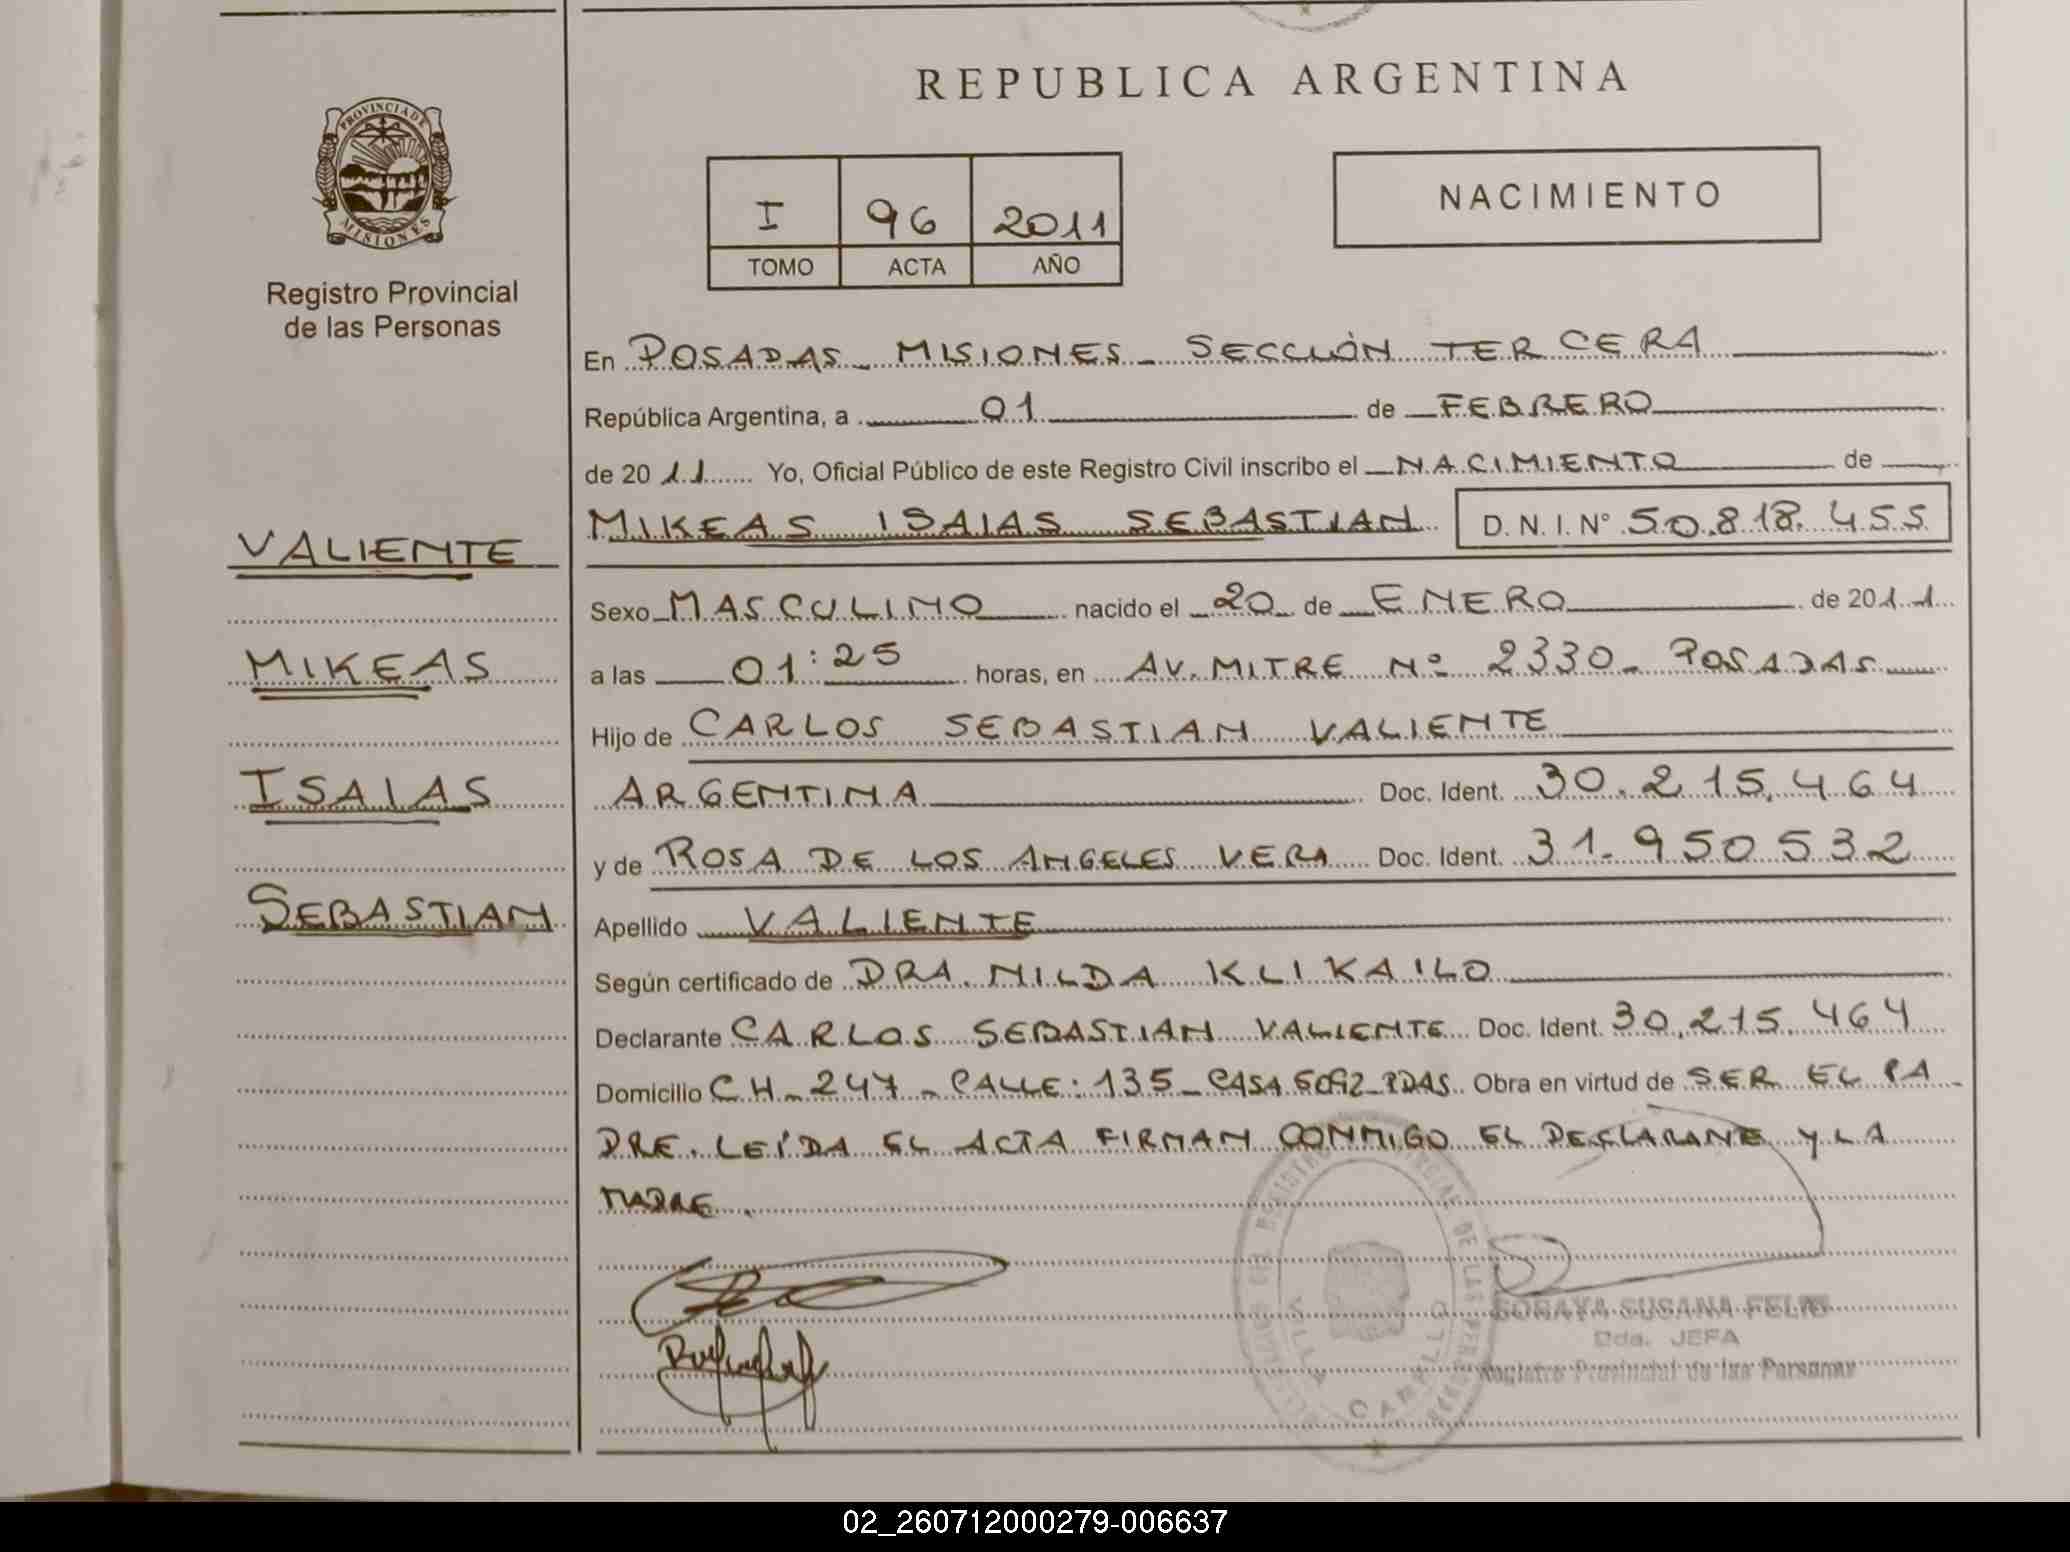 REPUBLICA ARGENTINA
PROVINCIA DE
MISIONES
Registro Provincial
de las Personas
I 96 2011
TOMO ACTA AÑO
NACIMIENTO
En POSADAS - MISIONES - SECCIÓN TERCERA
República Argentina, a 01 de FEBRERO
de 2011 Yo, Oficial Público de este Registro Civil inscribo el NACIMIENTO de
MIKEAS ISAIAS SEBASTIAN D. N. I. N° 50.818.455
VALIENTE
MIKEAS
ISAIAS
SEBASTIAN
Sexo MASCULINO nacido el 20 de ENERO de 2011
a las 01:25 horas, en AV. MITRE Nº 2330 - POSADAS
Hijo de CARLOS SEBASTIAN VALIENTE
ARGENTINA Doc. Ident. 30.215.464
y de ROSA DE LOS ANGELES VERA Doc. Ident. 31.950532
Apellido VALIENTE
Según certificado de DRA. NILDA KLIKAILO
Declarante CARLOS SEBASTIAN VALIENTE Doc. Ident. 30.215.464
Domicilio CH - 247 - CALLE: 135 - CASA PDAS. Obra en virtud de SER EL PA
DRE. LEÍDA EL ACTA FIRMAN CONMIGO EL DECLARANTE Y LA
MADRE.
SORAYA SUSANA
Dda. JEFA
Registro Provincial de las Personas
02_260712000279-006637